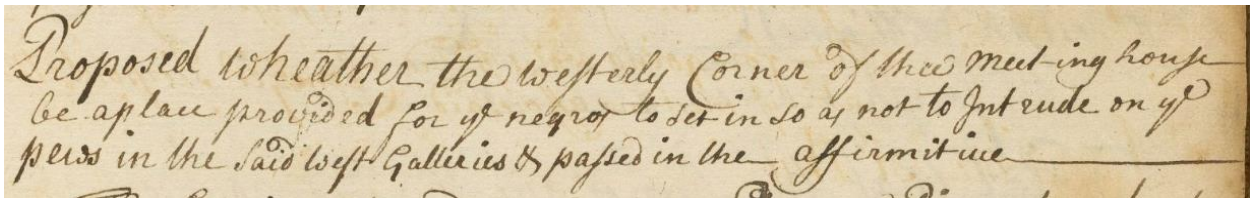 Proposed wheather the westerly Corner of thee meeting house
be a place provided for ye negros to set in so as not to Intrude on ye
pews in the said west Galleries & passed in the affirmitive